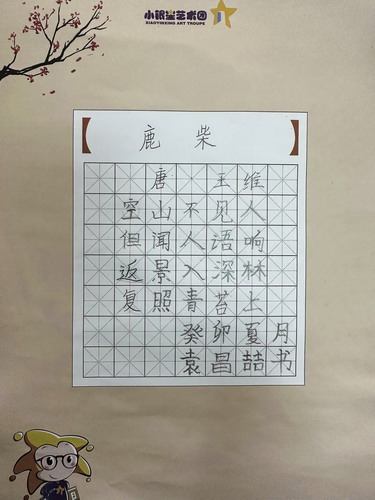 小银星艺术团
XIAOYINXING ART TROUPE
鹿柴
唐 王维
空山不见人
但闻人语响
返景入深林
复照青苔上
癸卯夏月
袁昌喆书